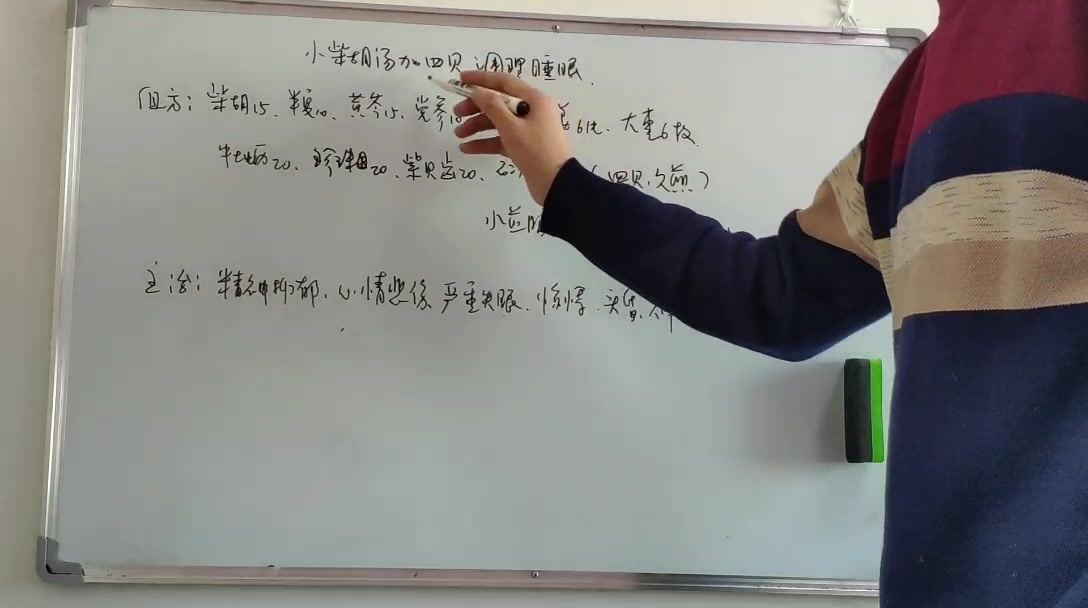 小柴胡汤加四贝调理睡眠.
组方：柴胡15、半夏10、黄芩15、党参10 6片、大枣6枚
牡蛎20、珍珠母20、紫贝齿20、石决 (四贝先煎)
主治：精神抑郁、心情悲伤 严重失眠、惊悸、头晕、